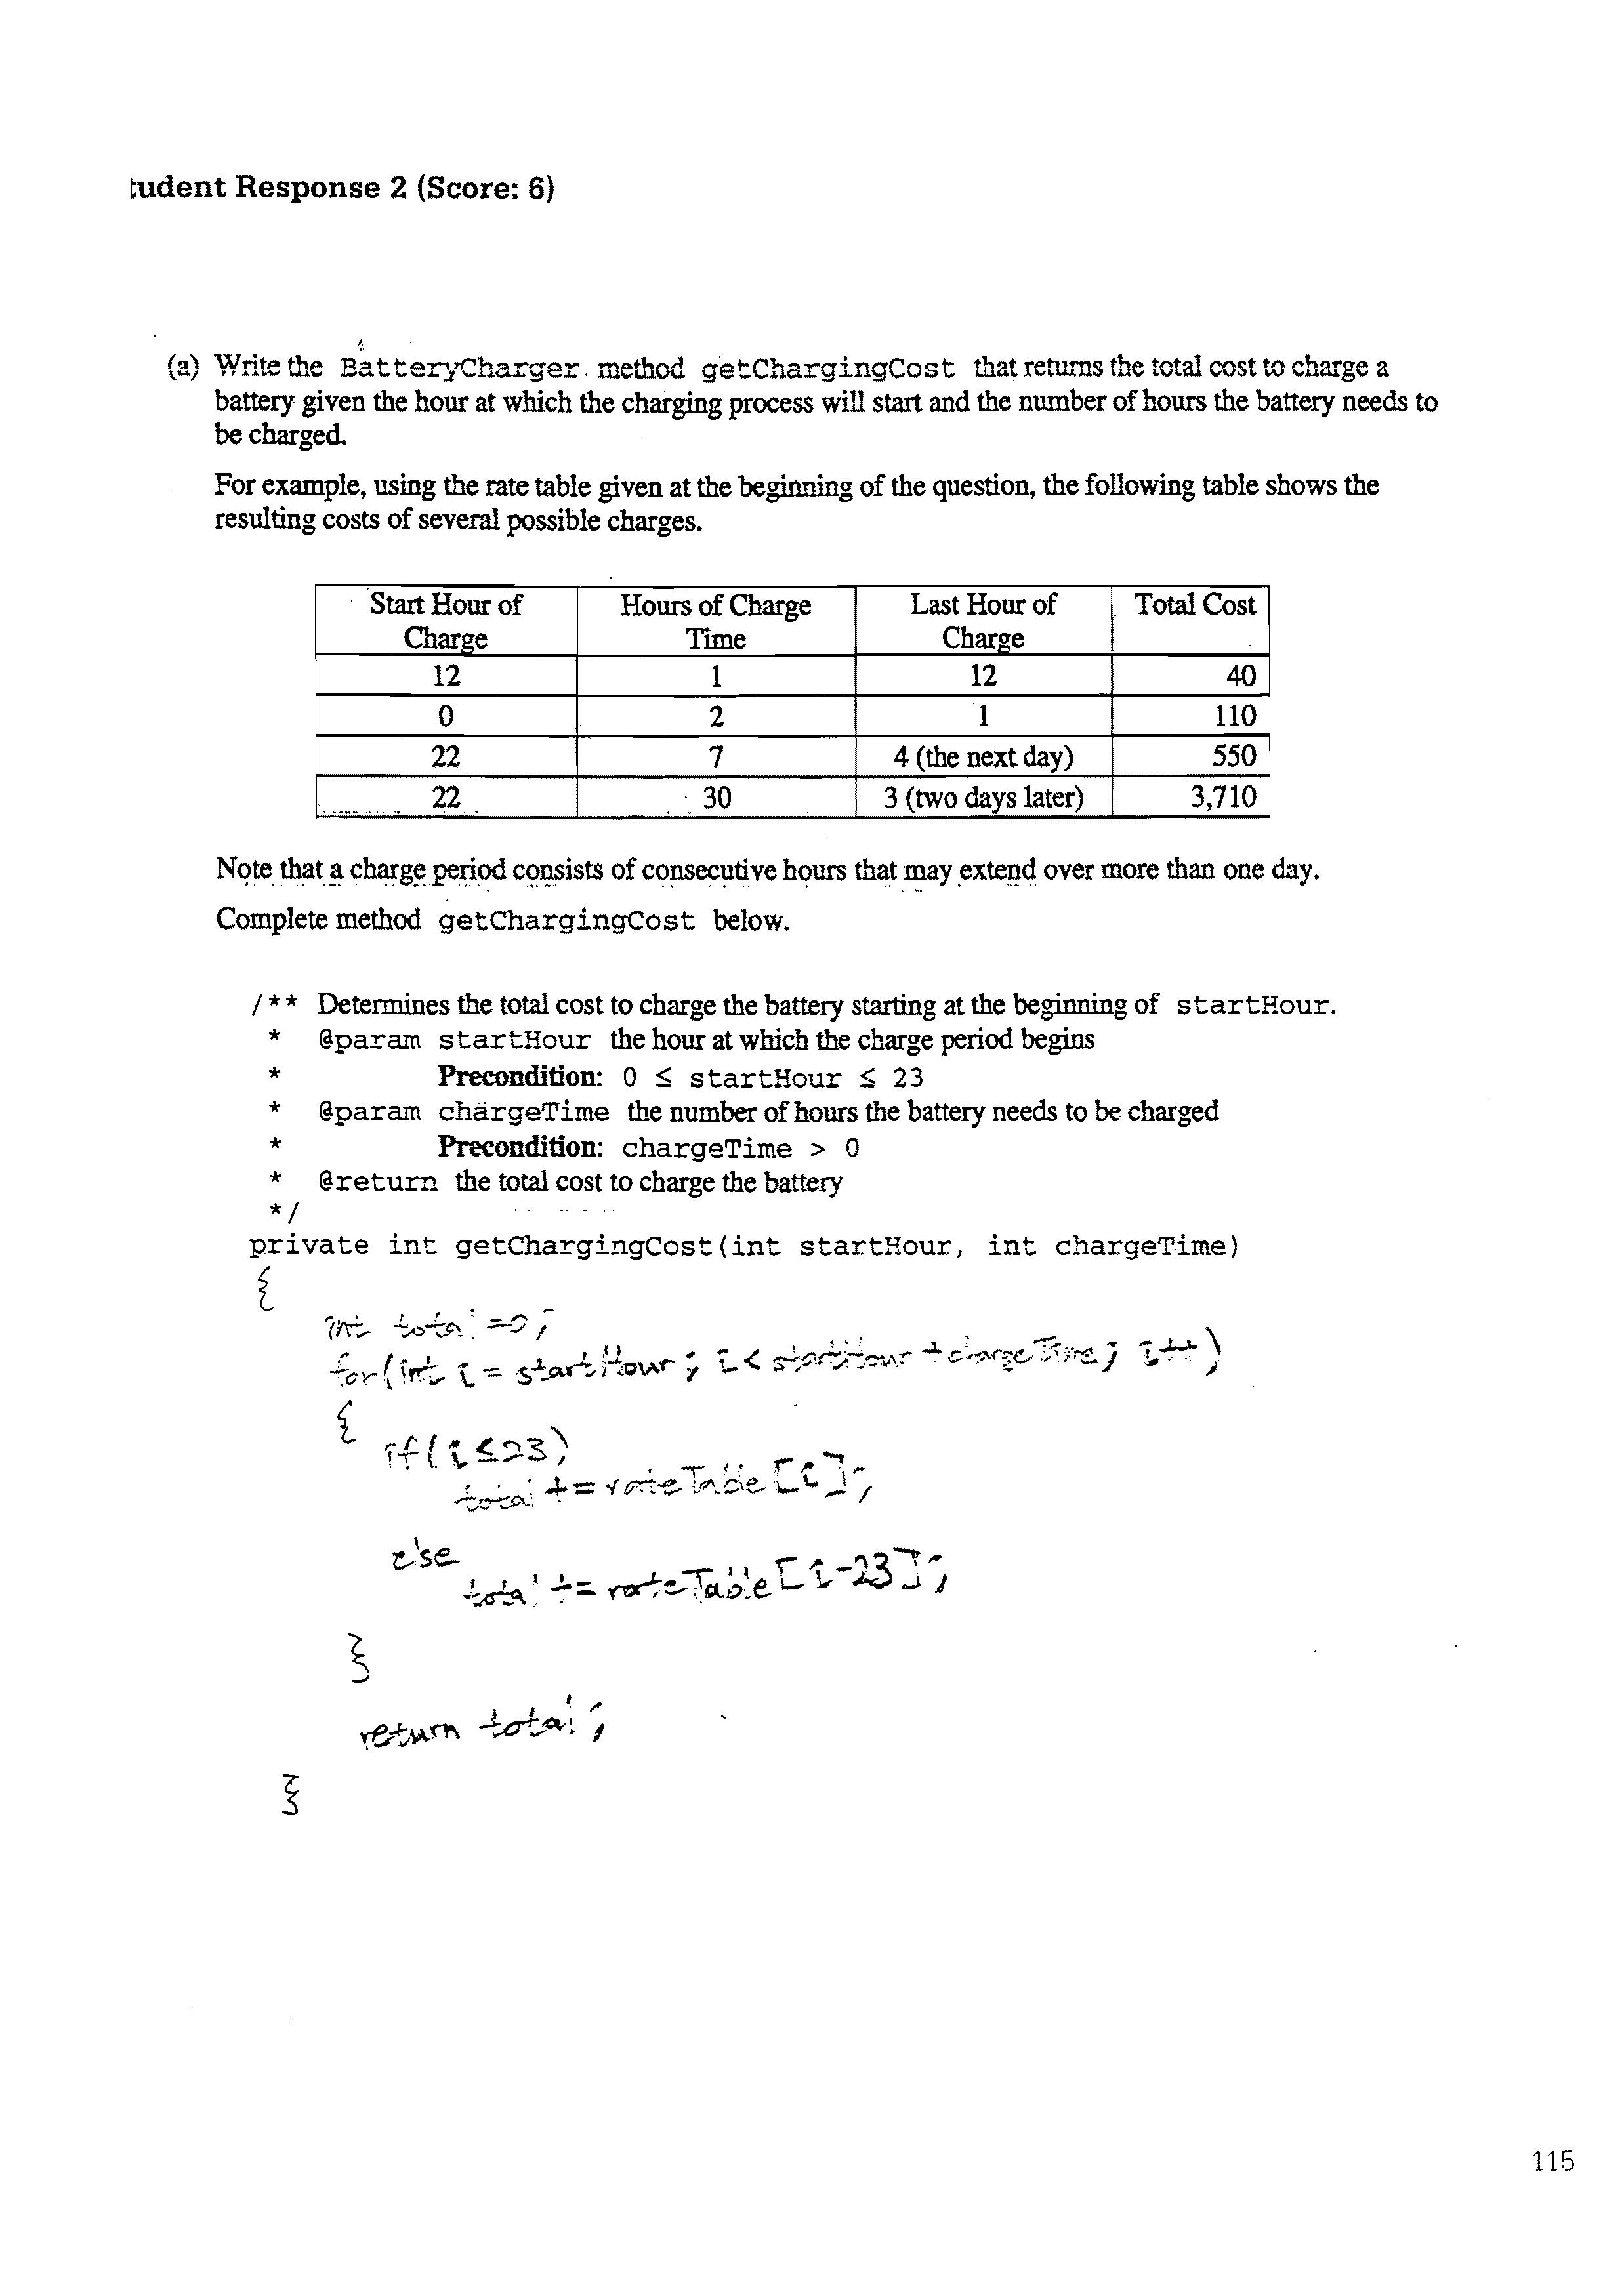 tudent Response 2 (Score: 6)
(a) Write the BatteryCharger method getChargingCost that returns the total cost to charge a
battery given the hour at which the charging process will start and the number of hours the battery needs to
be charged.
For example, using the rate table given at the beginning of the question, the following table shows the
resulting costs of several possible charges.
Start Hour of Charge Hours of Charge Time Last Hour of Charge Total Cost
12 1 12 40
0 2 1 110
22 7 4 (the next day) 550
22 30 3 (two days later) 3,710
Note that a charge period consists of consecutive hours that may extend over more than one day.
Complete method getChargingCost below.
/** Determines the total cost to charge the battery starting at the beginning of startHour.
* @param startHour the hour at which the charge period begins
* Precondition: 0 ≤ startHour ≤ 23
* @param chargeTime the number of hours the battery needs to be charged
* Precondition: chargeTime > 0
* @return the total cost to charge the battery
*/
private int getChargingCost(int startHour, int chargeTime)
{
int total =0;
for(int i = startHour; i < startHour + chargeTime; i++)
{
if(i ≤ 23)
total += rateTable[i];
else
total += rateTable[i-23];
}
return total;
}
115